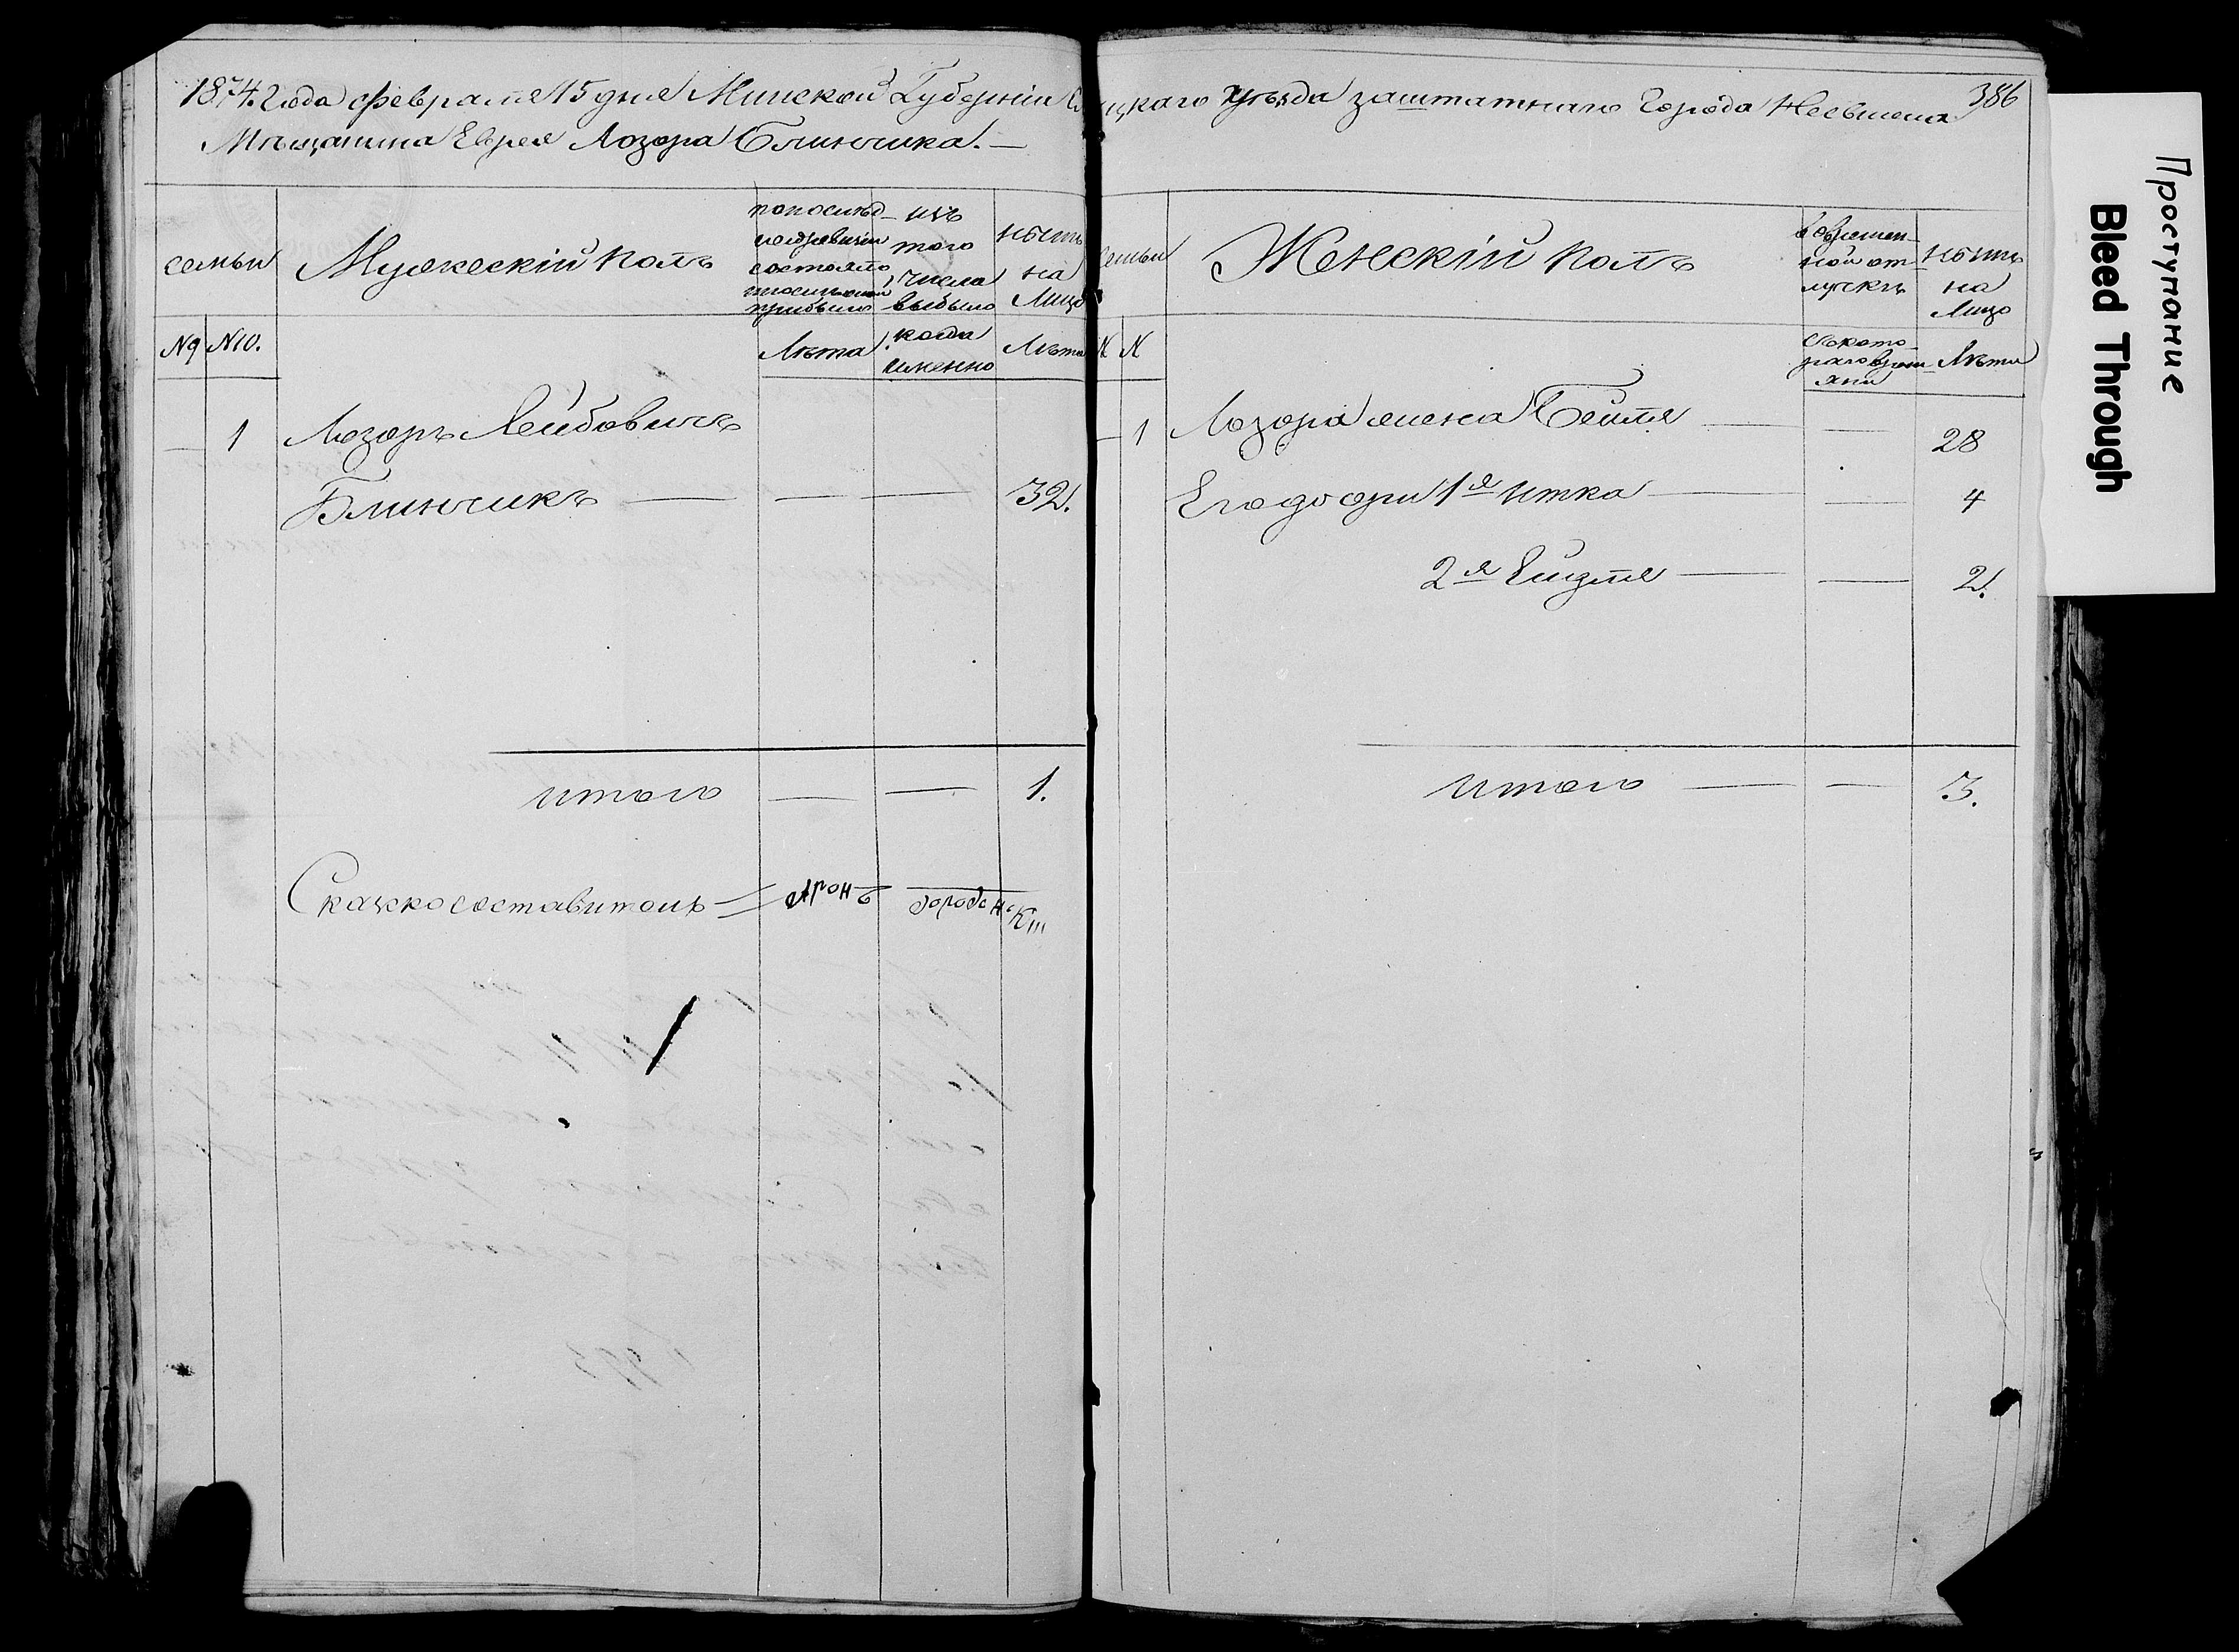 1874. Года февраля 15 дня Минской Губерніи Слуцкаго Уѣзда заштатнаго Города Несвижа 386
Мѣщанина Еврея Лозора Блинчика.—
семьи
Мужескій полъ
по послѣд-
ней ревизіи
состояло
и послѣ оной
прибыло
изъ
того
числа
выбыло
нынѣ
на
Лицо
№9 №10.
Лѣта
когда
именно
Лѣта
— 1 Лозоръ Лейбовичъ
Блинчикъ — — — 32.
итого — — 1.
Сказкосоставитель
Аронъ
семьи
Женскій полъ
во времен-
ной от-
лучкѣ
нынѣ
на
Лицо
№ №
съ кото-
раго време-
яни
Лѣта
— 1 Лозора жена Бейля — — 28
Его дочери 1я Итка — — 4
2я Ейдля — — 2.
итого — — 3.
Проступание
Bleed Through